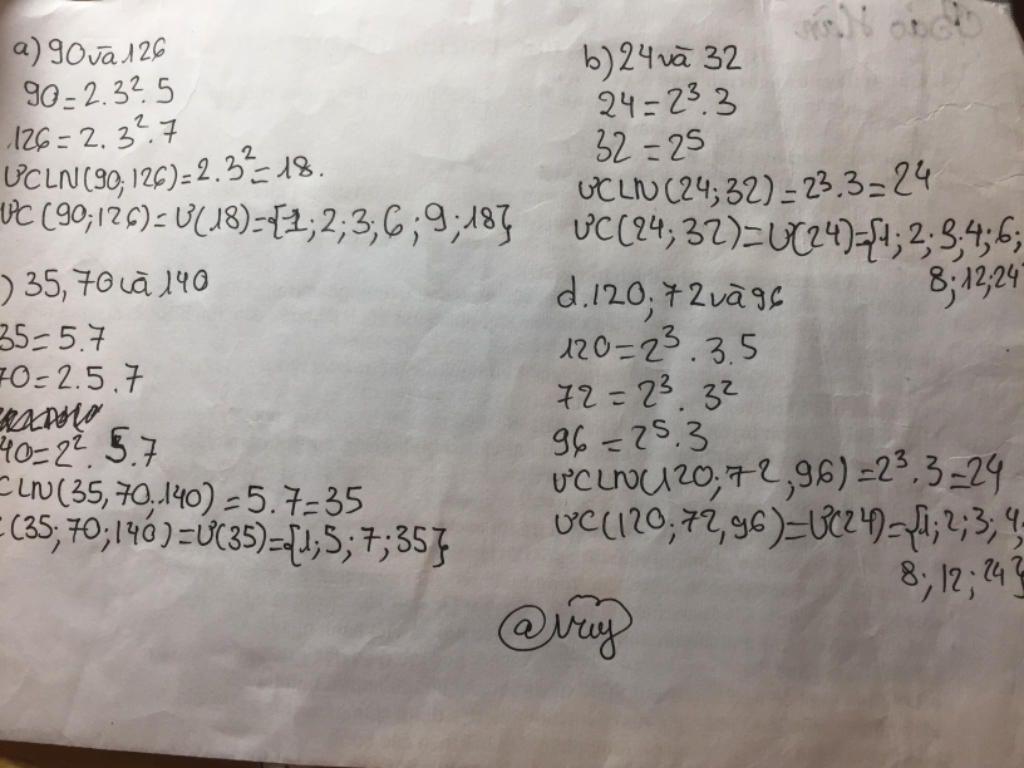 a) 90 và 126
90 = 2.3².5
126 = 2.3².7
ƯCLN(90;126) = 2.3² = 18.
ƯC(90;126) = Ư(18) = {1;2;3;6;9;18}
) 35, 70 và 140
35 = 5.7
70 = 2.5.7
40 = 2².5.7
CLN(35,70,140) = 5.7 = 35
C(35;70;140) = Ư(35) = {1;5;7;35}
b) 24 và 32
24 = 2³.3
32 = 2⁵
ƯCLN(24;32) = 2³.3 = 24
ƯC(24;32) = Ư(24) = {1;2;3;4;6;
8;12;24
d. 120; 72 và 96
120 = 2³.3.5
72 = 2³.3²
96 = 2⁵.3
ƯCLN(120;72,96) = 2³.3 = 24
ƯC(120;72,96) = Ư(24) = {1;2;3;4;
8;12;24}